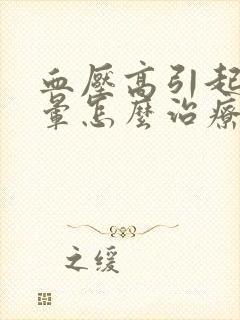 血壓高引起
暈怎麼治療
之缓